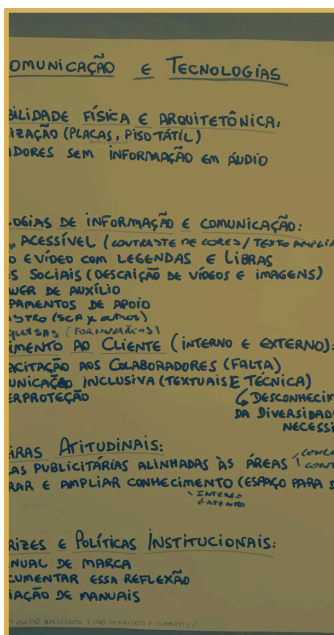 OMUNICAÇÃO E TECNOLOGIAS
BILIDADE FÍSICA E ARQUITETÔNICA:
IZAÇÃO (PLACAS, PISO TÁTIL)
ADORES SEM INFORMAÇÃO EM ÁUDIO
LOGIAS DE INFORMAÇÃO E COMUNICAÇÃO:
ACESSÍVEL (CONTRASTE DE CORES / TEXTO AMPLIA
O E VÍDEO COM LEGENDAS E LIBRAS
S SOCIAIS (DESCRIÇÃO DE VÍDEOS E IMAGENS)
WER DE AUXÍLIO
PAMENTOS DE APOIO
STRO (SCA X
(FORMULÁRIOS)
IMENTO AO CLIENTE (INTERNO E EXTERNO):
ACITAÇÃO AOS COLABORADORES (FALTA)
UNICAÇÃO INCLUSIVA (TEXTUAIS E TÉCNICA)
ERPROTEÇÃO
DESCONHECIM
DA DIVERSIDAD
NECESSI
IRAS ATITUDINAIS:
AS PUBLICITÁRIAS ALINHADAS ÀS ÁREAS
RAR E AMPLIAR CONHECIMENTO (ESPAÇO PARA
INTERNO
EXTERNO
RIZES E POLÍTICAS INSTITUCIONAIS:
NUAL DE MARCA
CUMENTAR ESSA REFLEXÃO
IAÇÃO DE MANUAIS